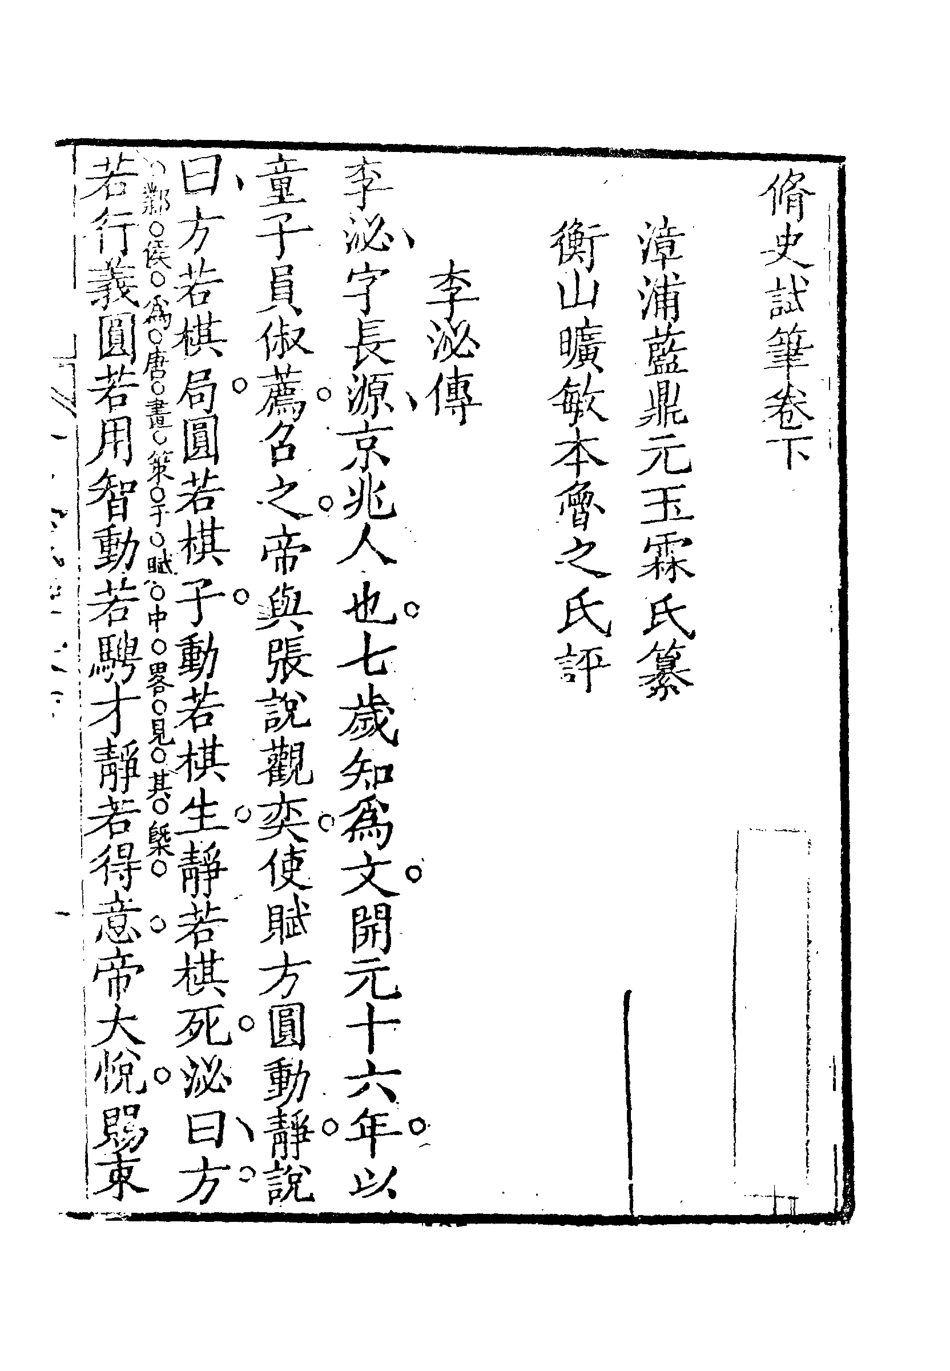 脩史試筆卷下
漳浦藍鼎元玉霖氏纂
衡山曠敏本魯之氏評
李泌傳
李泌字長源京兆人也七歲知爲文開元十六年以
童子員俶薦召之帝與張說觀奕使賦方圓動靜說
曰方若棋局圓若棋子動若棋生靜若棋死泌曰方
鄴侯爲唐畫策于賦中畧見其槩
若行義圓若用智動若騁才靜若得意帝大悅賜束